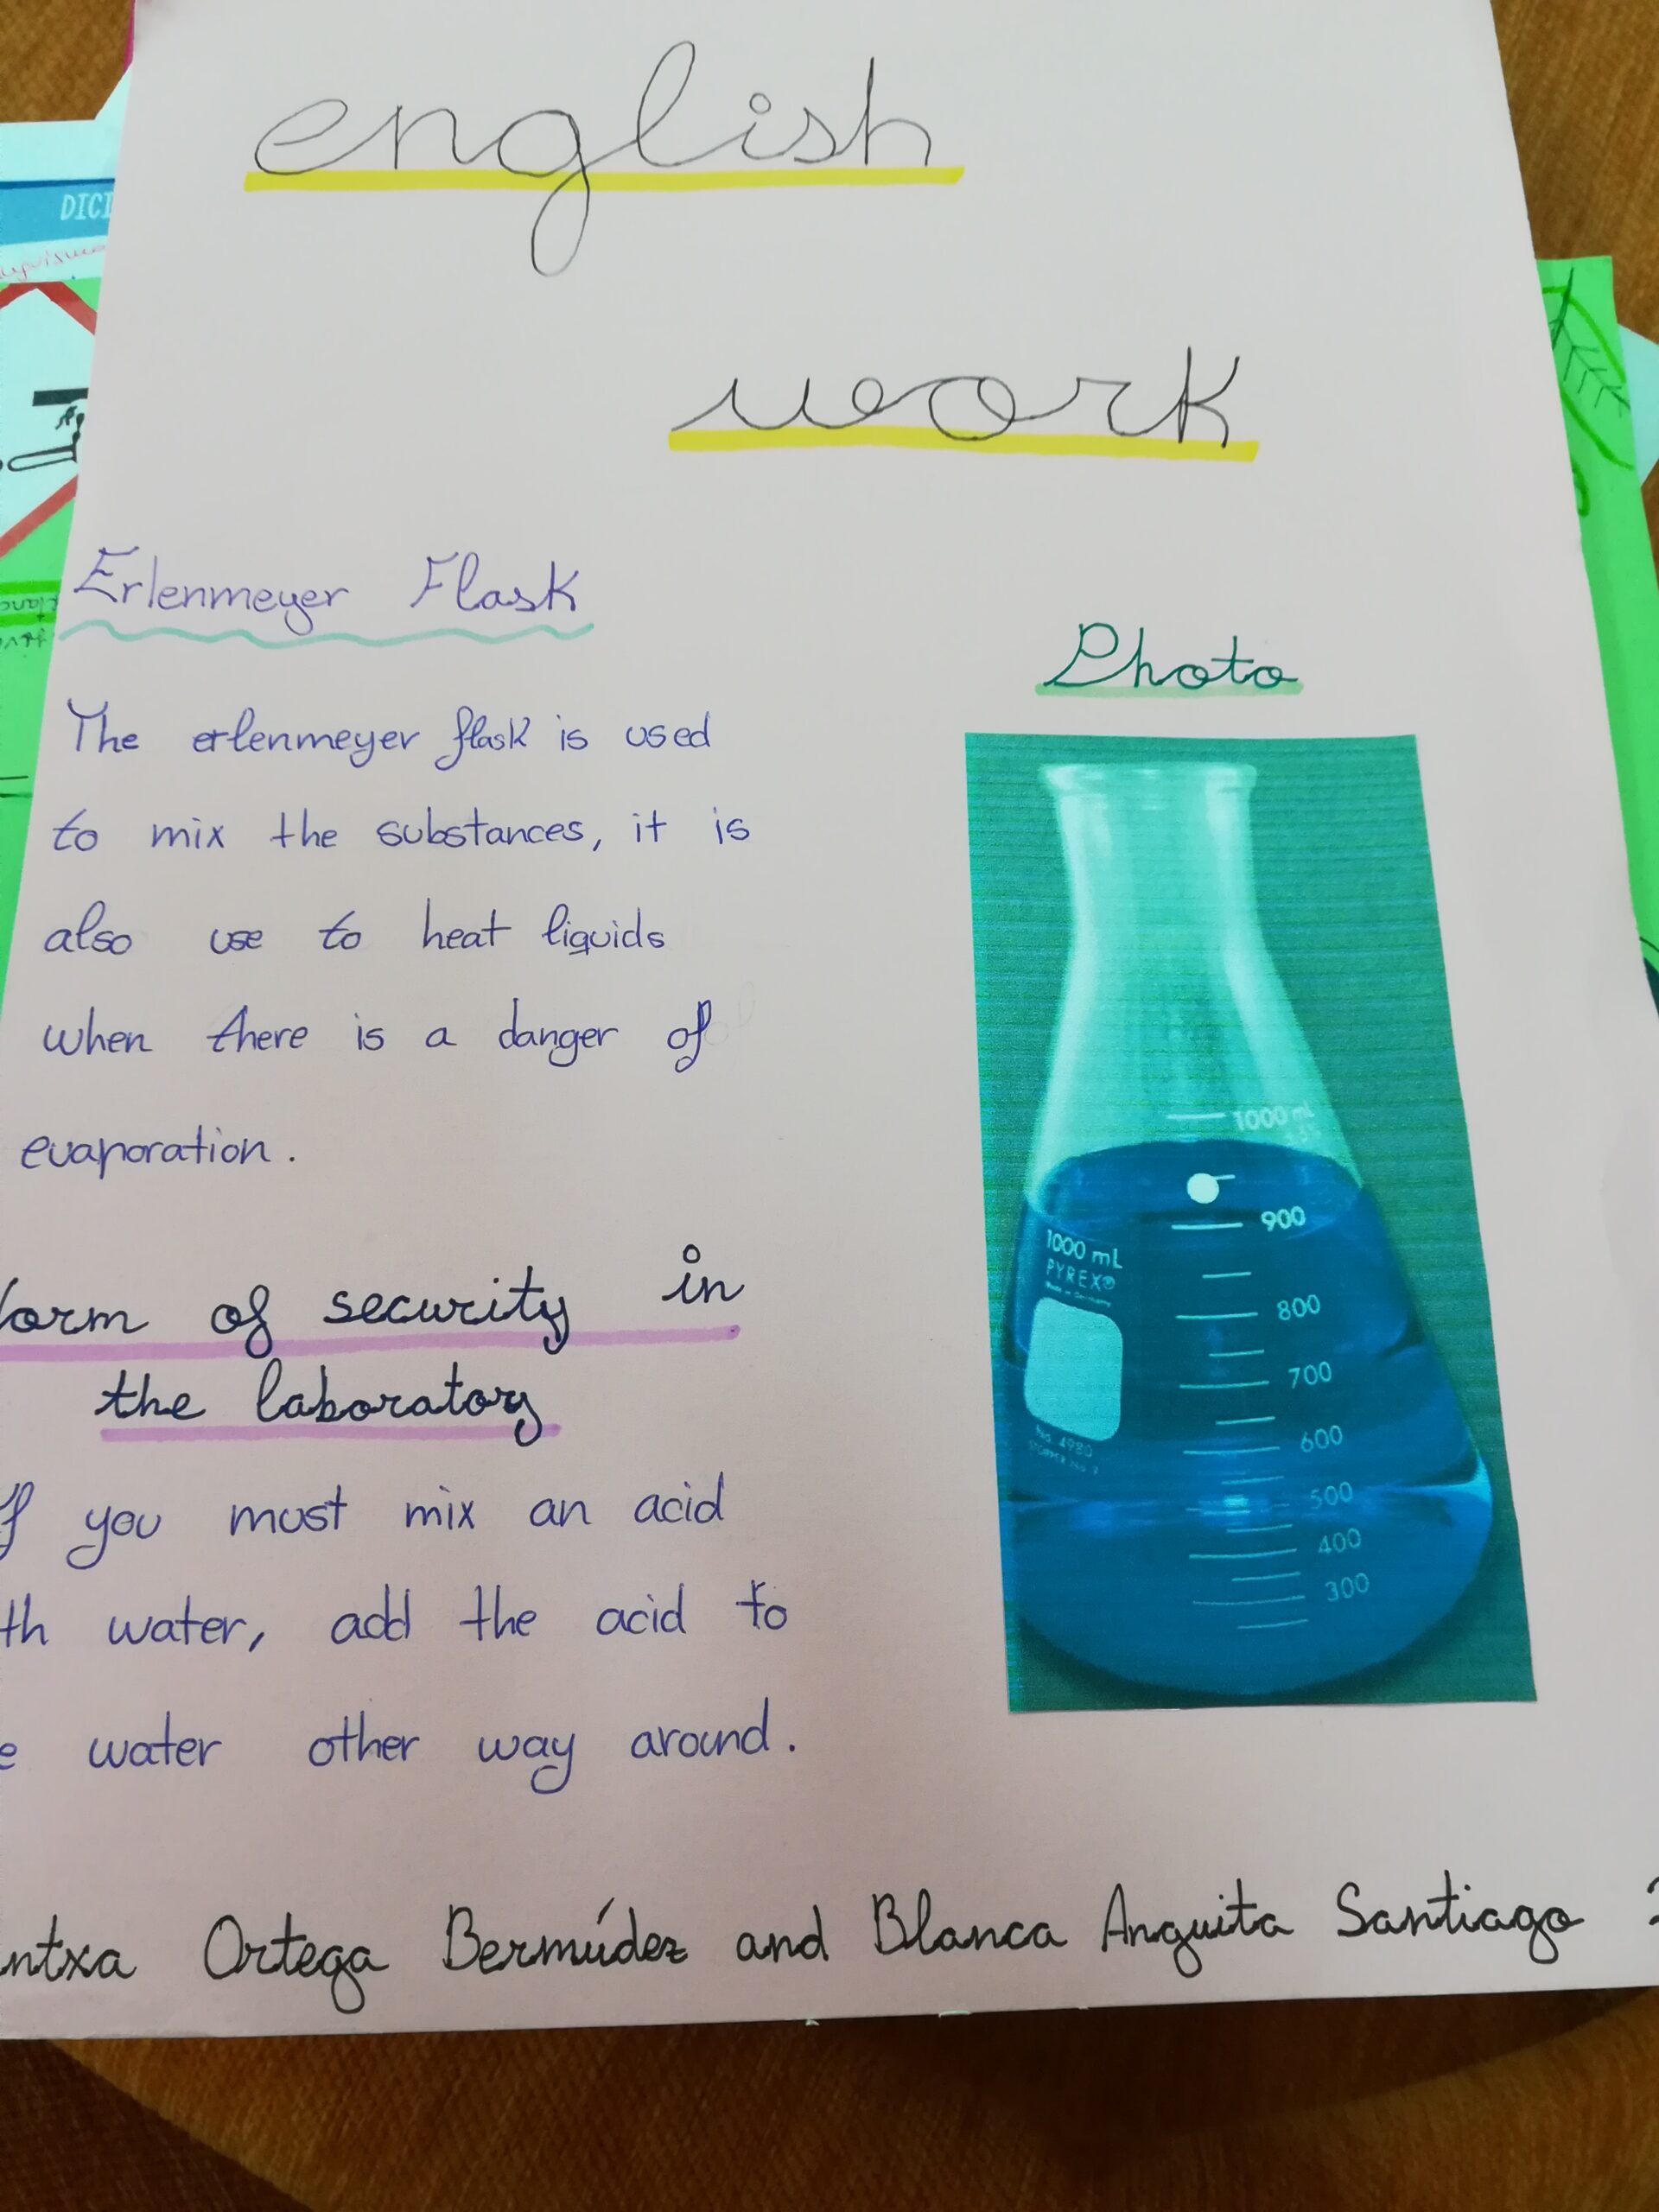 english
work
Erlenmeyer Flask
The erlenmeyer flask is used
to mix the substances, it is
also use to heat liquids
when there is a danger of
evaporation.
of security in
the laboratory
you must mix an acid
water, add the acid to
water other way around.
Photo
1000 mL
900
1000 mL
PYREX®
800
700
600
No. 4980
500
400
300
Ortega Bermúdez and Blanca Anguita Santiago
DICI